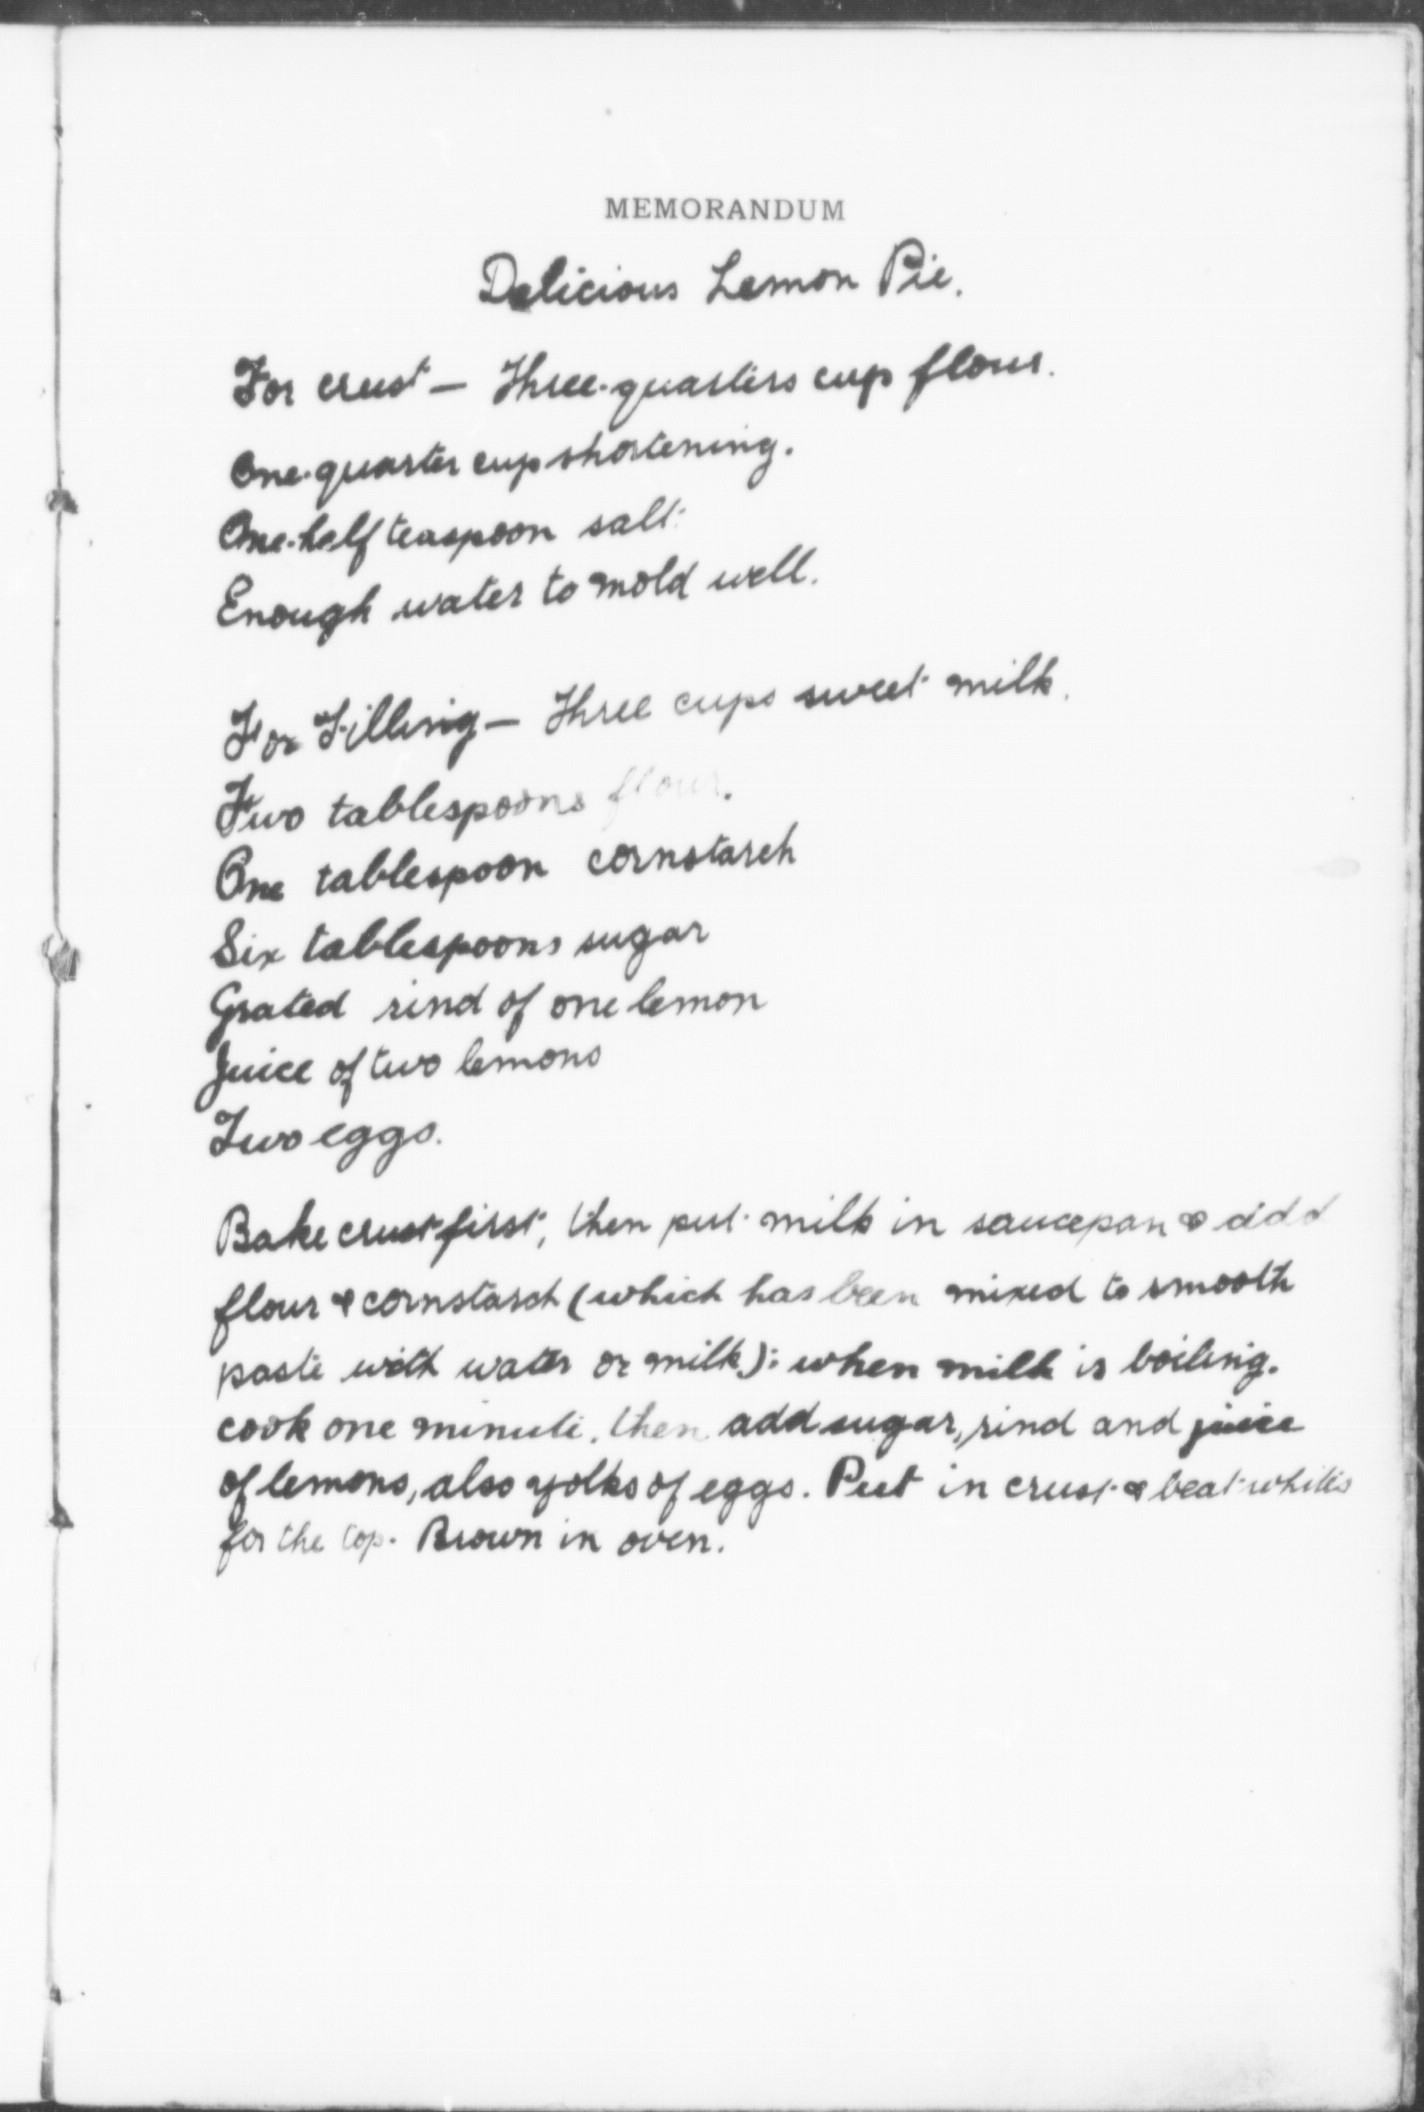 MEMORANDUM
Delicious Lemon Pie.
For crust - Three-quarters cup flour.
One-quarter cup shortening.
One-half teaspoon salt.
Enough water to mold well.
For Filling - Three cups sweet milk.
Two tablespoons flour.
One tablespoon cornstarch
Six tablespoons sugar
Grated rind of one lemon
Juice of two lemons
Two eggs.
Bake crust first, then put milk in saucepan & add
flour & cornstarch (which has been mixed to smooth
paste with water or milk); when milk is boiling.
cook one minute, then add sugar, rind and juice
of lemons, also yolks of eggs. Put in crust & beat whites
for the top. Brown in oven.